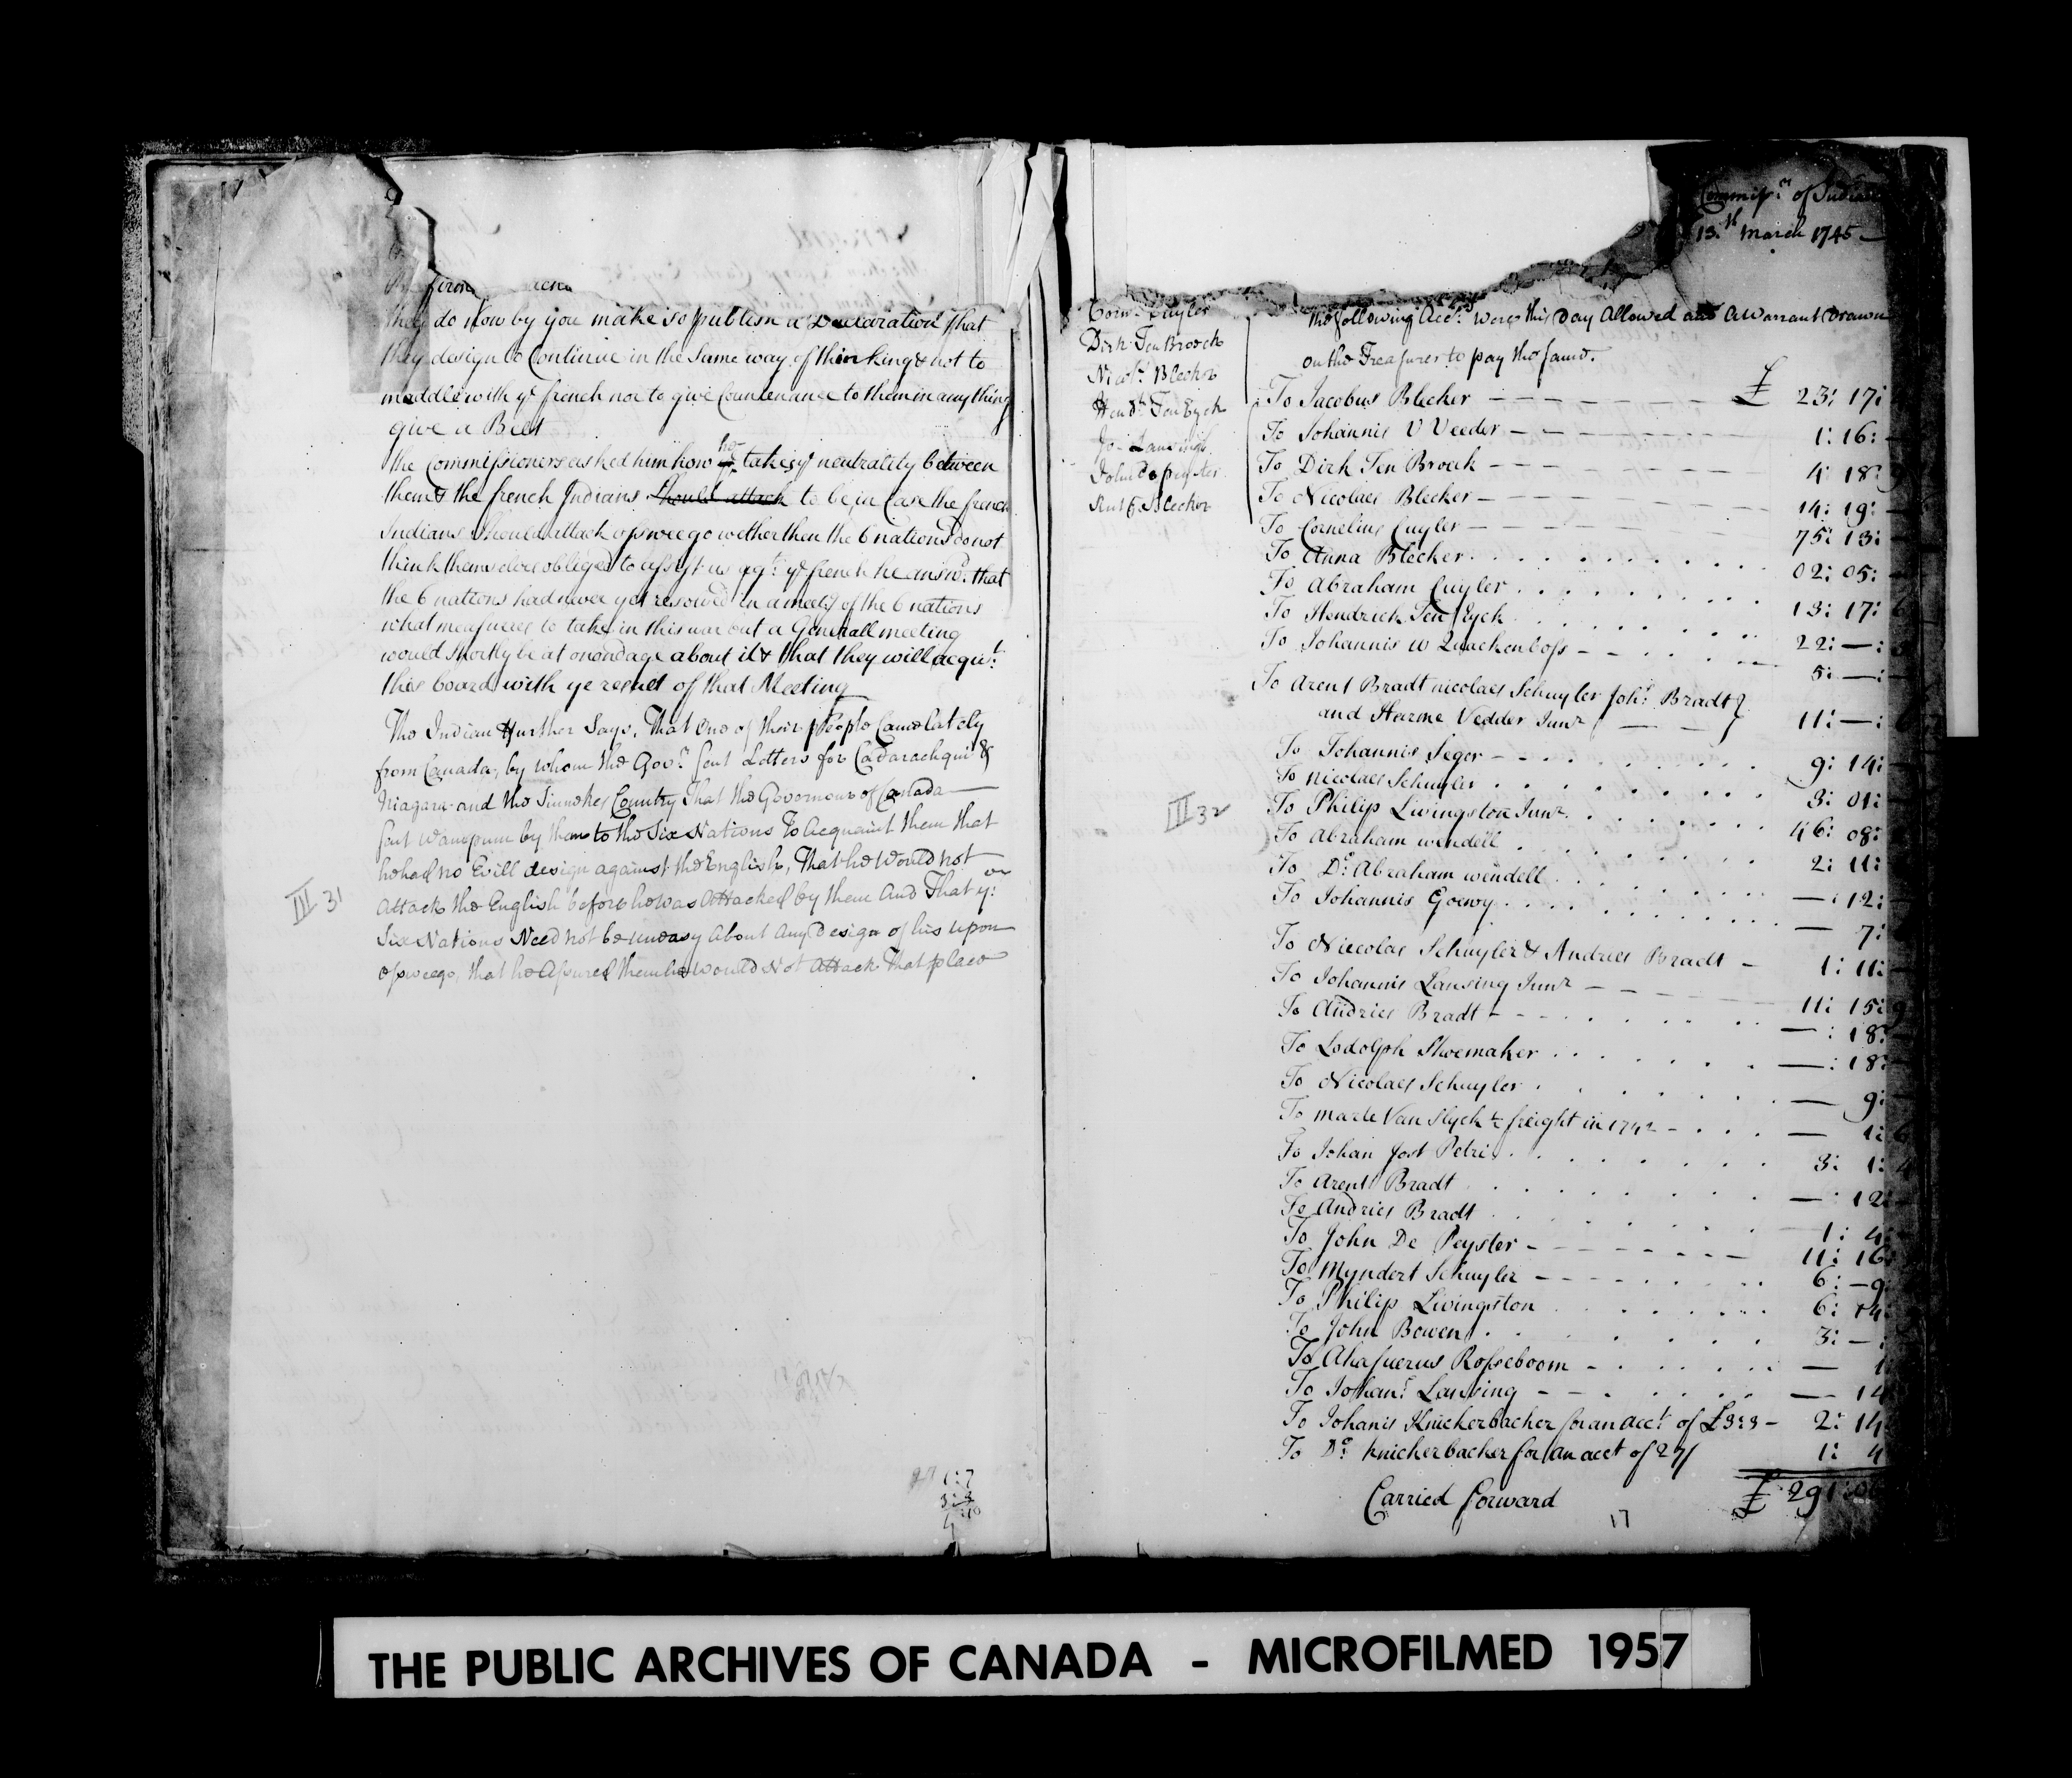 they do Now by you make & publish a Declaration that
they design to Continue in the Same way of thinking & not to
meddle with ye french nor to give Countenance to them in any thing
give a Belt
the Commissioners asked him how he takes ye neutrality between
them & the french Indians should attack to be, in Case the french
Indians should attack osweego wether then the 6 nations do not
think themselves obliged to assist us agt: ye french he answd. that
the 6 nations had never yet resolved in a meetg of the 6 nations
what measures to take in this war but a Generall meeting
would shortly be at onondage about it & that they will acqut:
this board with ye result of that Meeting
The Indian further Says, That one of their People Came lately
from Canada, by whom the Govr. sent Letters for Cadarachqui &
Niagara and the Sinnekes Country That the Governour of Canada
sent wampum by them to the Six Nations To acquaint them that
he had no Evill design against the English, That he Would not
Attack the English before he was Attacked by them And That ye:
Six Nations Need not be uneasy About Any Design of his upon
osweego, that he Assured them he would Not Attack That place
III 31
1:7
3:3
4:10
Commissrs of Indian
13.th March 1745
Corns. Cuyler
Dirk Ten Broeck
Nicols. Blecker
Hendk Ten Eyck
Jo. Lansingh
John Depeyster
Rutg. Blecker
The following Acctts. were this Day Allowed and A Warrant Drawn
on the Treasurer to pay the same.
To Jacobus Blecker £ 23: 17:
To Johannis V Veeder 1: 16:
To Dirk Ten Broeck 4: 18: 9
To Nicolaes Blecker 14: 19:
To Cornelius Cuyler 75: 13:
To Anna Blecker 02: 05:
To Abraham Cuyler 13: 17: 6
To Hendrick Ten Eyck 22: —:
To Johannis W Quackenboss 5: —:
To Arent Bradt nicolaes Schuyler Johs. Bradt
and Harme Vedder Junr 11: —:
To Johannis Seger 9: 14:
To Nicolaes Schuyler 3: 01:
III 32
To Philip Livingston Junr. 46: 08:
To Abraham Wendell 2: 11:
To Do: Abraham Wendell —: 12:
To Johannis Goewy — 7:
To Niccolas Schuyler & Andries Bradt 1: 11:
To Johannis Lansing Junr 11: 15: 9
To Andries Bradt —: 18:
To Lodolph Shoemaker —: 18:
To Nicolaes Schuyler — 9:
To marte Van Slyck freight in 1742 — 1: 6
To Johan Jost Petri 3: 1: 4
To Arent Bradt —: 12:
To Andries Bradt 1: 4:
To John De Peyster 11: 16:
To Myndert Schuyler 6: — 9
To Philip Livingston 6: 14:
To John Bowen 3: — :
To Ahasuerus Rosseboom — 1
To Johans. Lansing — 14
To Johanis Knickerbacher for an acct of £3:3 2: 14
To Do. Knickerbacker for an acct of 27/ 1: 4
Carried forward £ 291: 06
17
THE PUBLIC ARCHIVES OF CANADA - MICROFILMED 1957